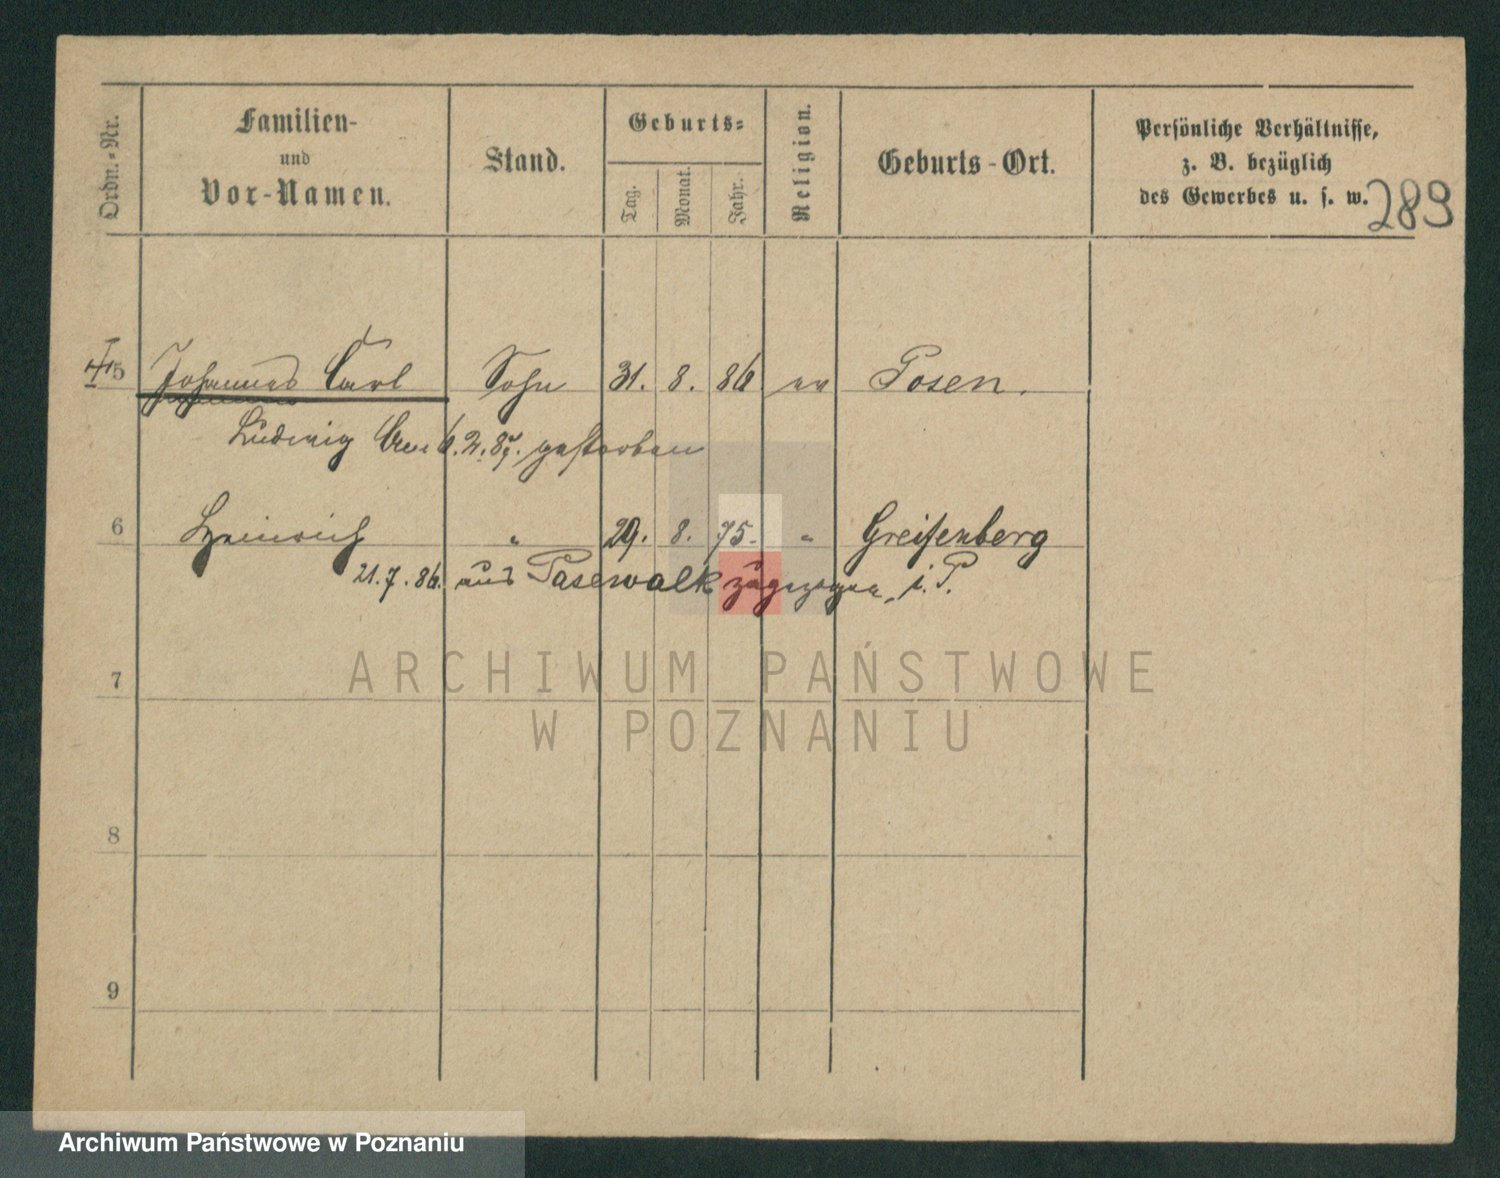 Ordn.-Nr.
Familien-
und
Vor-Namen.
Stand.
Geburts-
Tag.
Monat.
Jahr.
Religion.
Geburts-Ort.
Persönliche Verhältnisse,
z. B. bezüglich
des Gewerbes u. s. w.
289
5 Johannes Carl Sohn 31. 8. 86 ev Posen.
Ludwig Am 6.2.87. gestorben
6 Heinrich " 29. 8. 75. " Greifenberg
21.7.86. aus Pasewalk zugezogen i. P.
7
ARCHIWUM PAŃSTWOWE
W POZNANIU
8
9
Archiwum Państwowe w Poznaniu